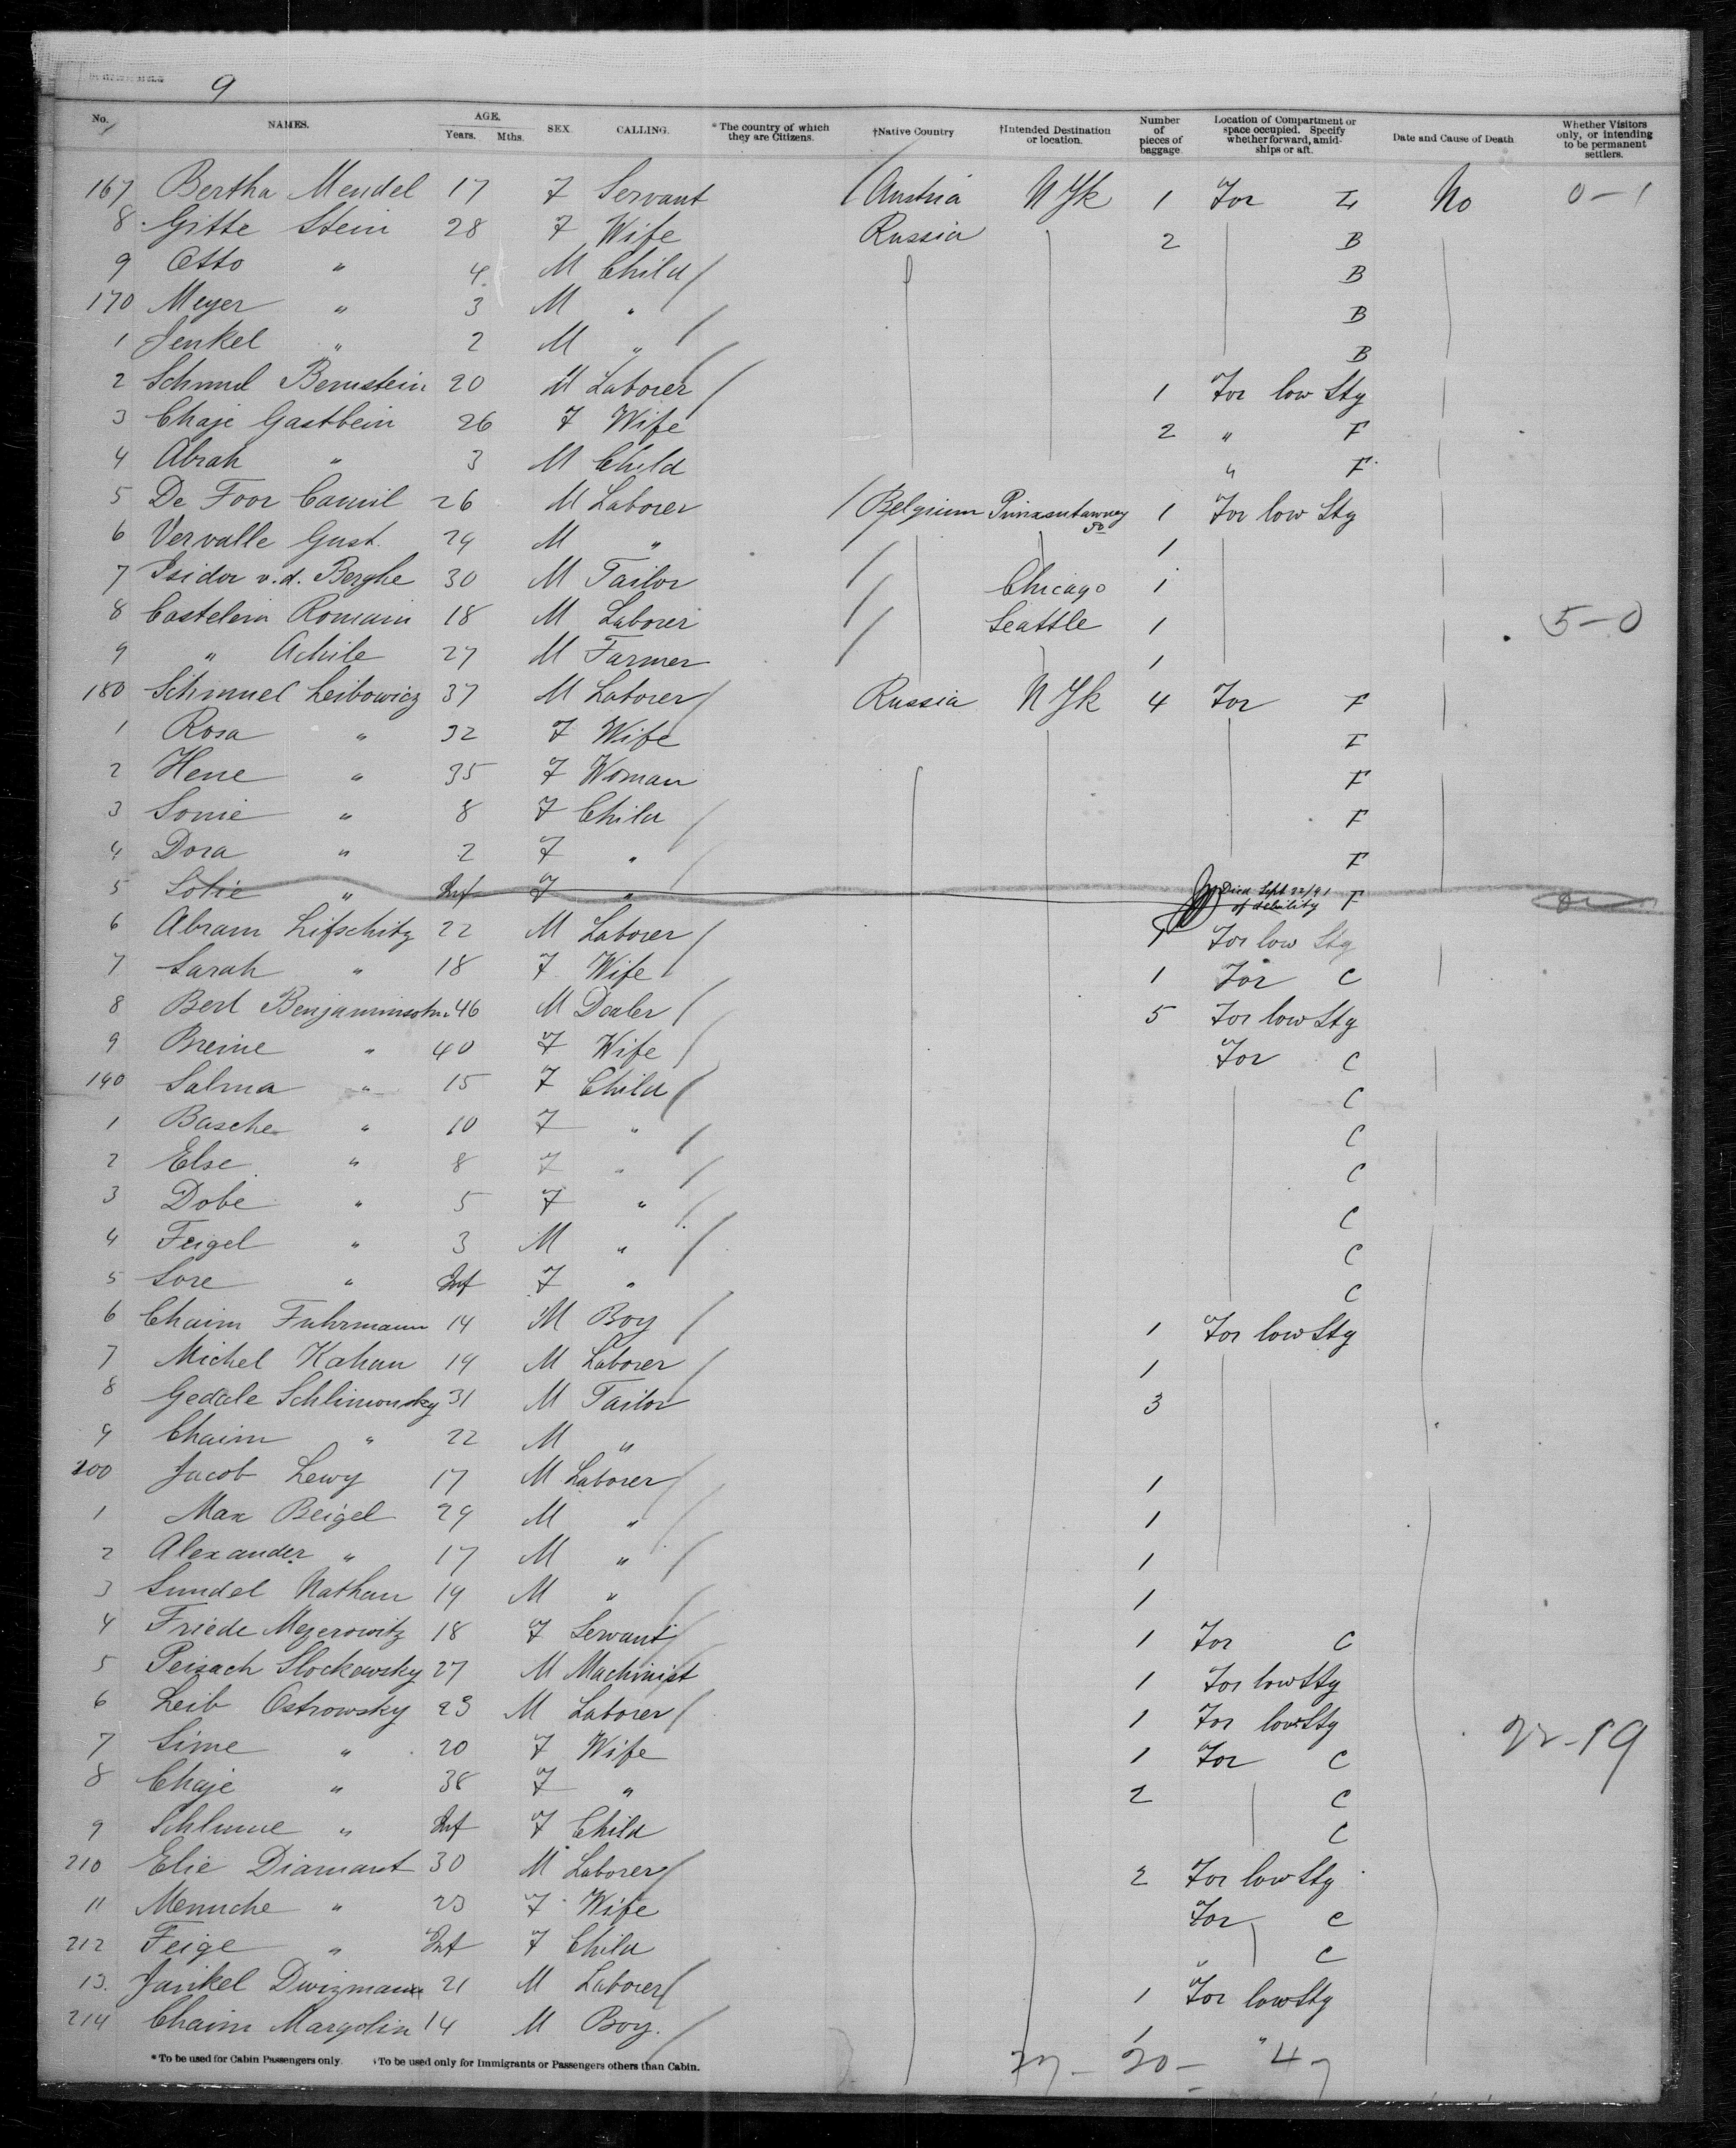 9
No. NAMES. AGE. Years. Mths. SEX. CALLING. *The country of which they are Citizens. †Native Country †Intended Destination or location. Number of pieces of baggage. Location of Compartment or space occupied. Specify whether forward, amidships or aft. Date and Cause of Death Whether Visitors only, or intending to be permanent settlers.
167 Bertha Mendel 17 F Servant / Austria N Yk 1 For No 0-1
8 Gitte Stein 28 F Wife Russia 2 B
9 Otto " 4 M Child / B
170 Meyer " 3 M " / B
1 Jenkel " 2 M " / B
2 Schmul Bernstein 20 M Laborer / 1 For low Stg
3 Chaje Gastbein 26 F Wife 2 " F
4 Abrah " 3 M Child " F
5 De Foor Camil 26 M Laborer / Belgium Punxsutawney 1 For low Stg
6 Vervalle Gust. 24 M " / 1
7 Isidor v.d. Berghe 30 M Tailor / Chicago 1
8 Castelein Romain 18 M Laborer / Seattle 1 5-0
9 " Achile 27 M Farmer / 1
180 Schmuel Leibowicz 37 M Laborer / Russia N Yk 4 For F
1 Rosa " 32 F Wife F
2 Hene " 35 F Woman F
3 Sonie " 8 F Child / F
4 Dora " 2 F " / F
5 Sofie " Inf F " Died Sept 22/91 of debility F
6 Abram Lifschitz 22 M Laborer / 1 For low Stg
7 Sarah " 18 F Wife / 1 For C
8 Berl Benjaminsohn 46 M Dealer / 5 For low Stg
9 Breine " 40 F Wife / For C
190 Salma " 15 F Child / C
1 Basche " 10 F " / C
2 Else " 8 F " / C
3 Dobe " 5 F " / C
4 Feigel " 3 M " / C
5 Sore " Inf F " C
6 Chaim Fuhrmann 14 M Boy / 1 For low Stg
7 Michel Kahan 19 M Laborer / 1
8 Gedale Schlimonsky 31 M Tailor / 3
9 Chaim " 22 M "
200 Jacob Lewy 17 M Laborer / 1
1 Max Beigel 29 M " / 1
2 Alexander " 17 M " / 1
3 Sundel Nathan 19 M " / 1
4 Friede Mezerowitz 18 F Servant / 1 For C
5 Peisach Slockewsky 27 M Machinist / 1 For low Stg
6 Leib Ostrowsky 23 M Laborer / 1 For low Stg
7 Sime " 20 F Wife 1 For C 22-19
8 Chaje " 38 F " 2 C
9 Schlume " Inf F Child C
210 Elie Diamant 30 M Laborer / 2 For low Stg
11 Menuche " 23 F Wife For C
212 Feige " Inf F Child " C
13. Jankel Dwizmann 21 M Laborer / 1 For low Stg
214 Chaim Margolin 14 M Boy. / 1 "
*To be used for Cabin Passengers only. †To be used only for Immigrants or Passengers others than Cabin.